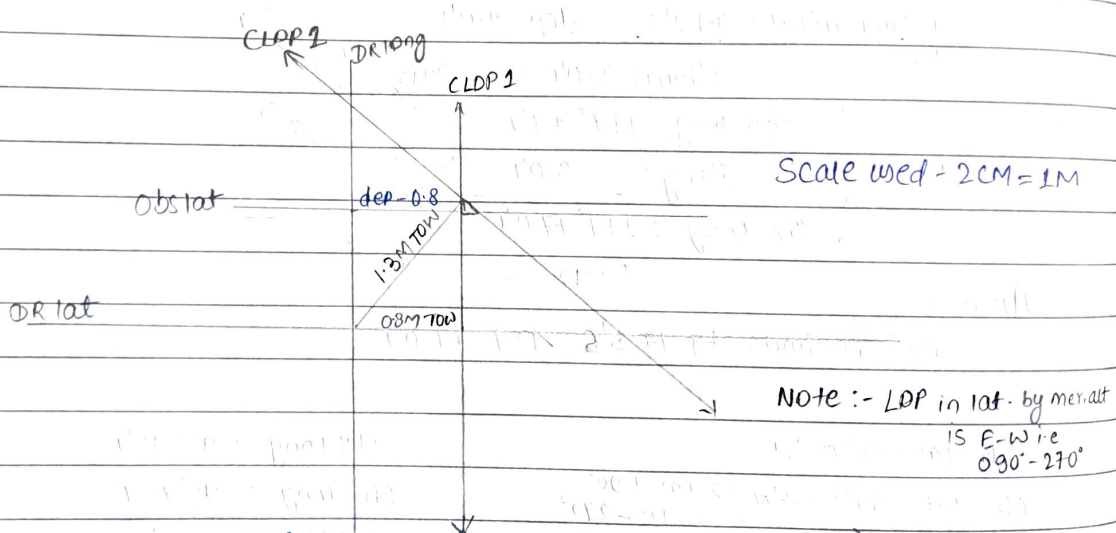 CLOP2
DR long
CLOP 1
Scale used - 2CM = 1M
Obs lat
dep - 0.8
1.3M TOW
DR lat
08M TOW
Note :- LOP in lat. by mer.alt
is E-W i.e
090° - 270°